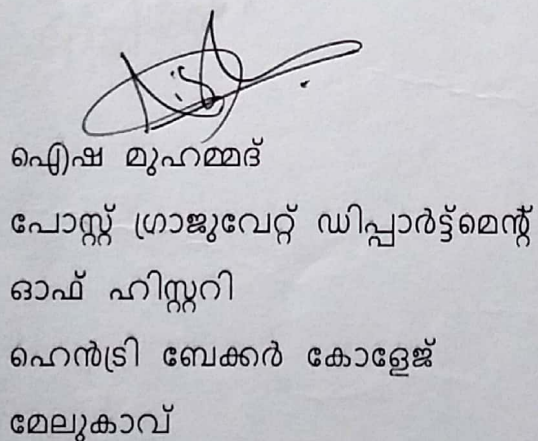 ഐഷ മുഹമ്മദ്
പോസ്റ്റ് ഗ്രാജുവേറ്റ് ഡിപ്പാർട്ട്മെന്റ്
ഓഫ് ഹിസ്റ്ററി
ഹെൻട്രി ബേക്കർ കോളേജ്
മേലുകാവ്